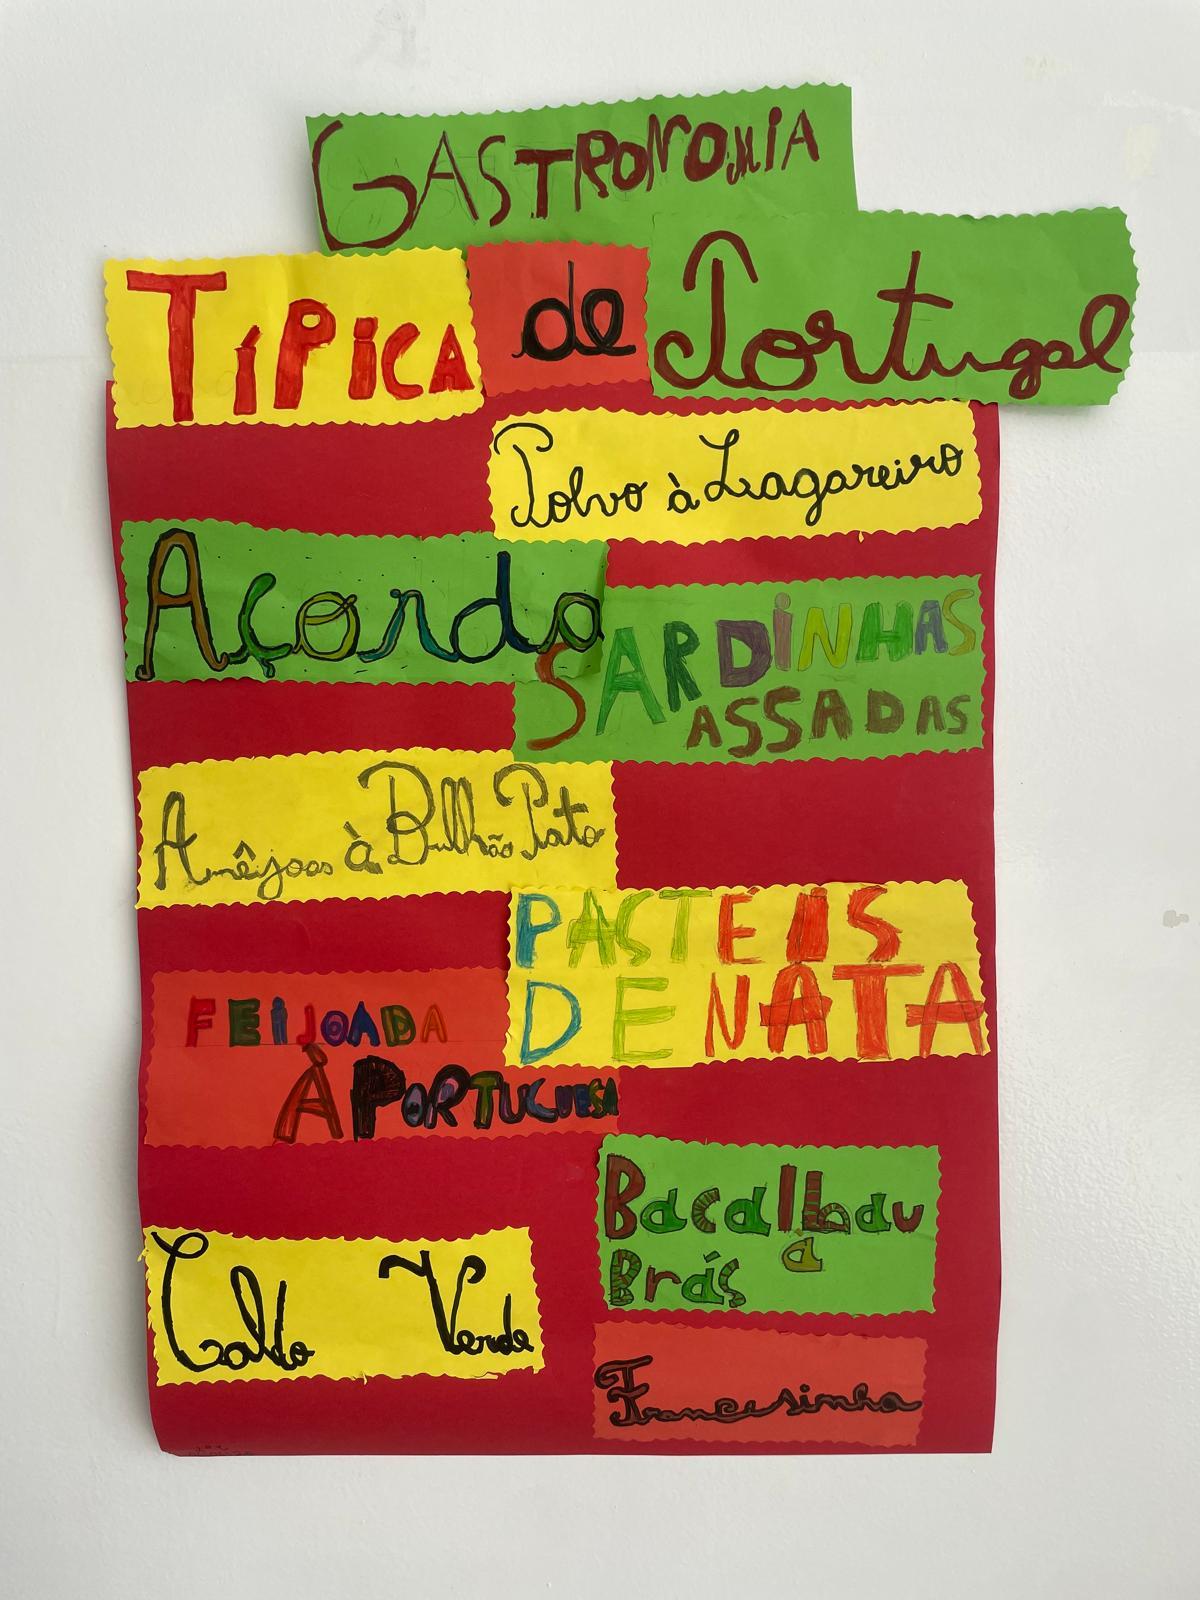 GASTRONOMIA
TÍPICA de Portugal
Polvo à Lagareiro
Açorda
SARDINHAS
ASSADAS
Amêijoas à Bulhão Pato
PASTÉIS
DE NATA
FEIJOADA
À PORTUGUESA
Bacalhau
à
Brás
Caldo Verde
Francesinha